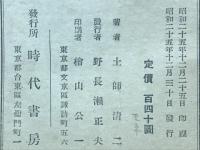 昭和二十五年十二月二十五日　印刷
昭和二十五年十二月三十日　發行
定價　百四十圓
著者　土師清二
發行者　野長瀬正夫
印刷者　檜山公一
東京都文京區諏訪町五六
發行所　時代書房
東京都台東區左衛門町一